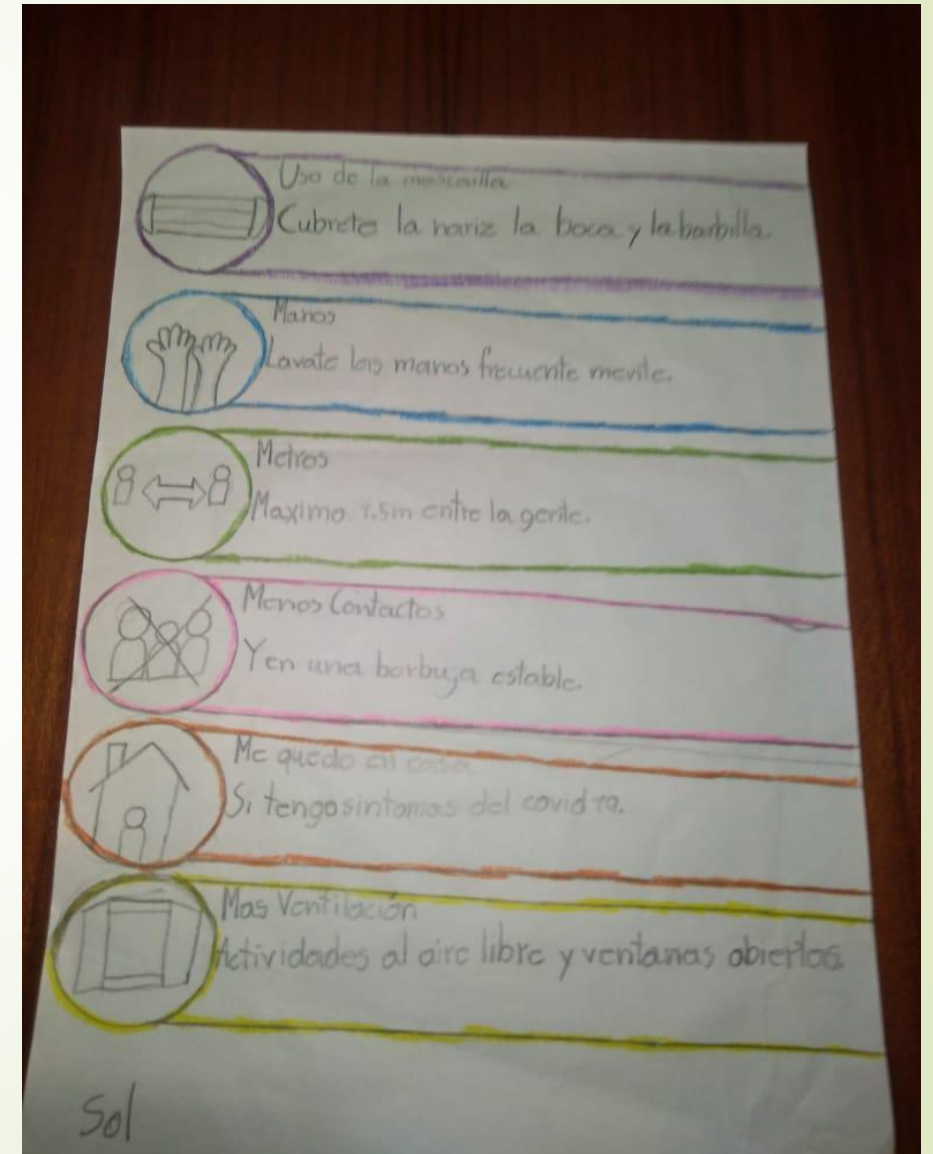 Uso de la mascarilla
Cubrete la nariz la boca y la barbilla.
Manos
Lavate las manos frecuente mente.
Metros
Maximo 1.5m entre la gente.
Menos Contactos
Y en una borbuja estable.
Me quedo en casa
Si tengo sintomas del covid 19.
Mas Ventilación
Actividades al aire libre y ventanas abiertas.
Sol